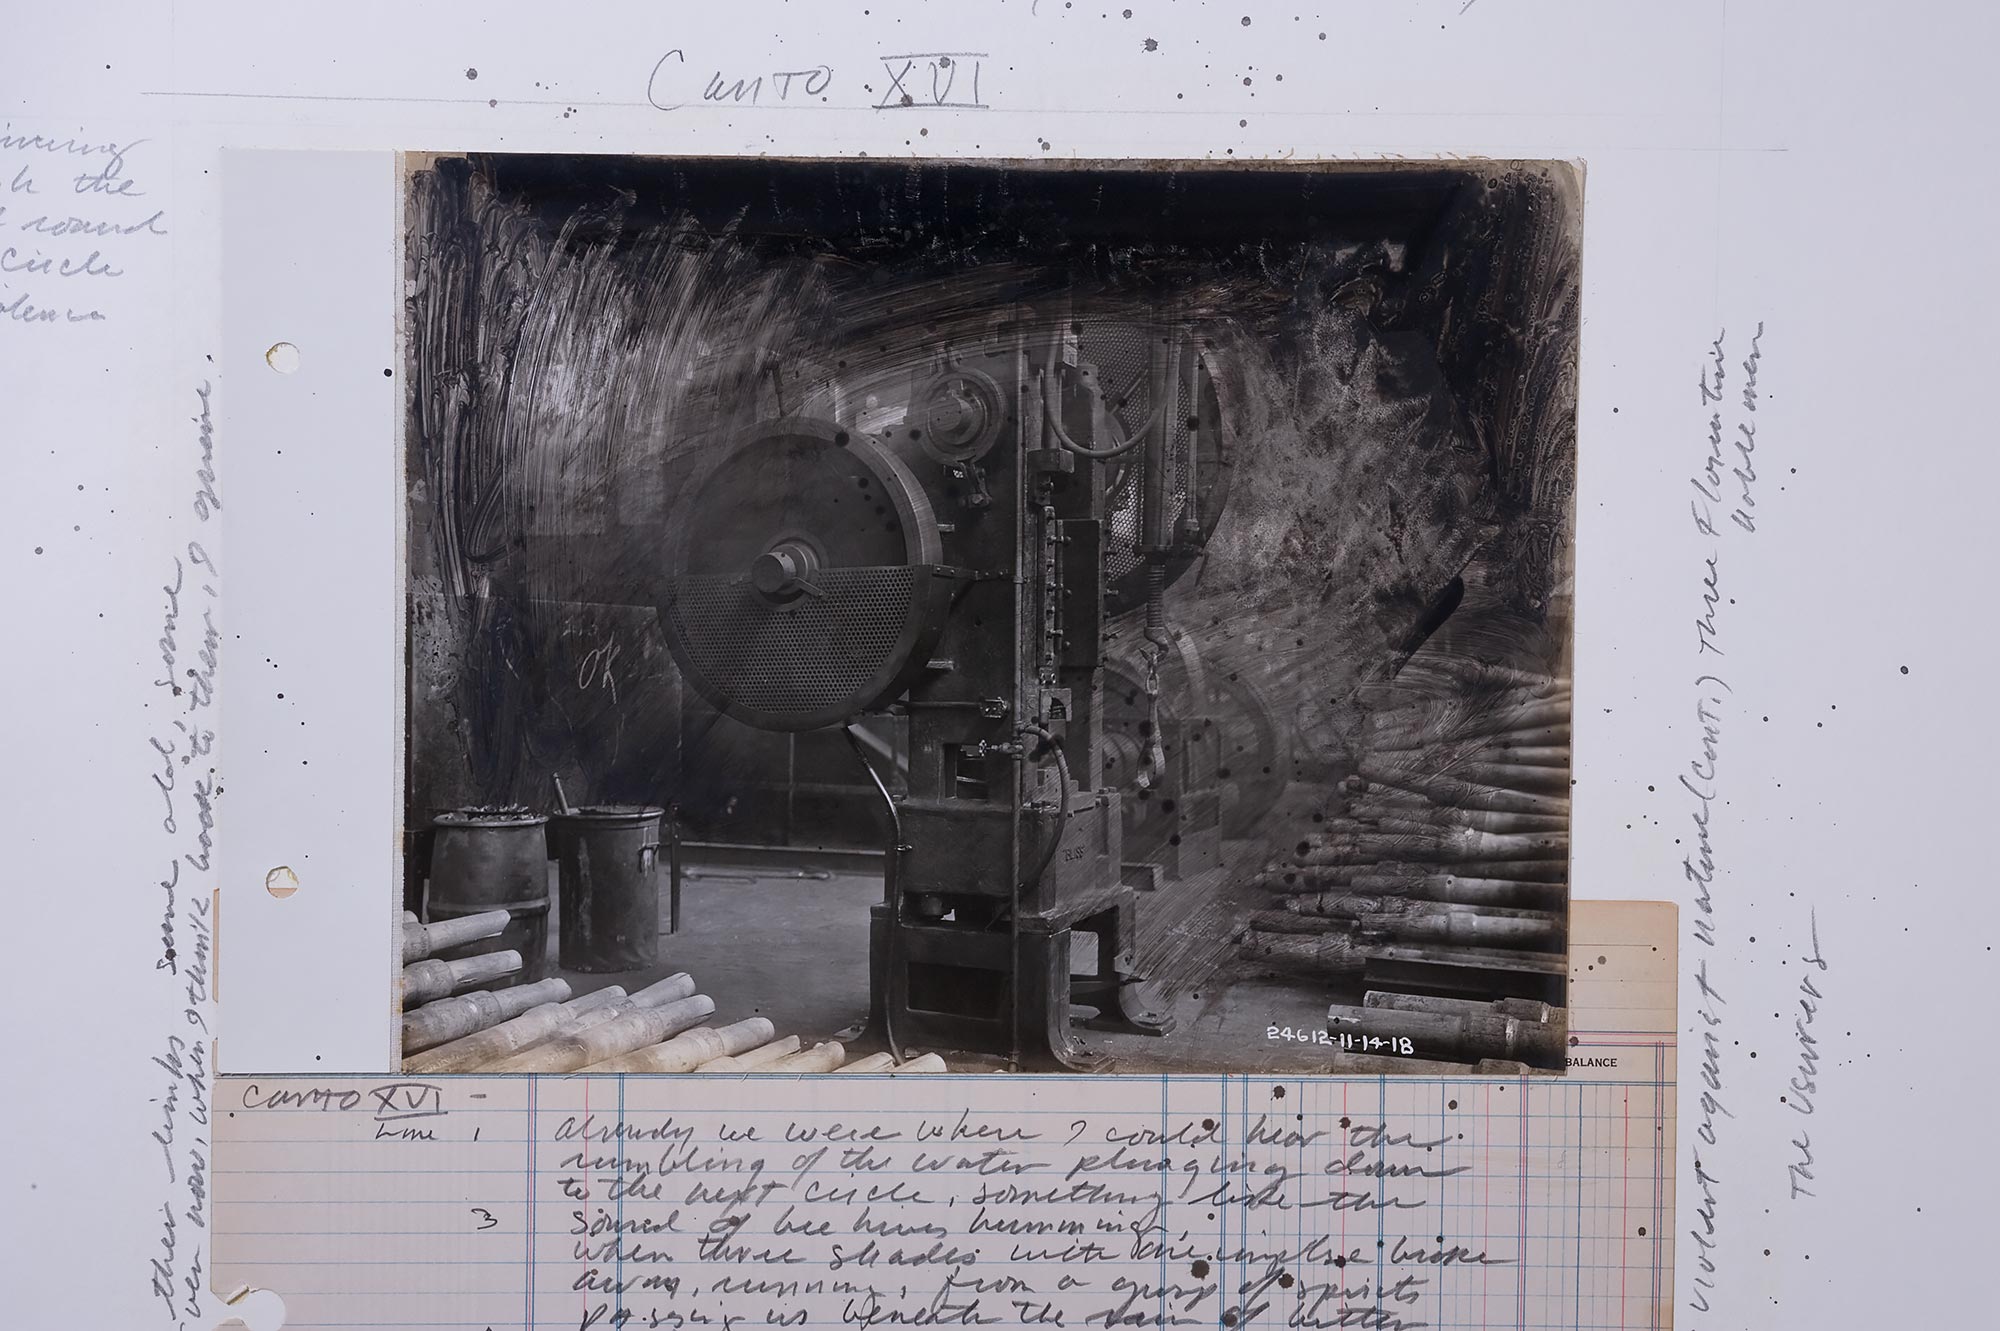 Canto XVI
the
round
Circle
their limbs some old, some
even now, when I think back to them, I grieve.
OK
"BLISS"
24612-11-14-18
Violent against nature (cont.) Three Florentine
noblemen
The Usurers
BALANCE
Canto XVI -
Line 1 Already we were where I could hear the
rumbling of the water plunging down
to the next circle, something like the
3 sound of bee hives humming,
when three shades with one impulse broke
away, running, from a group of spirits
passing us beneath the rain of bitter